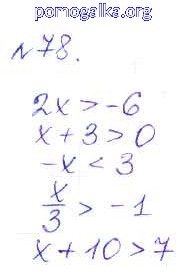 pomogalka.org
№78.
2x > -6
x + 3 > 0
-x < 3
x/3 > -1
x + 10 > 7